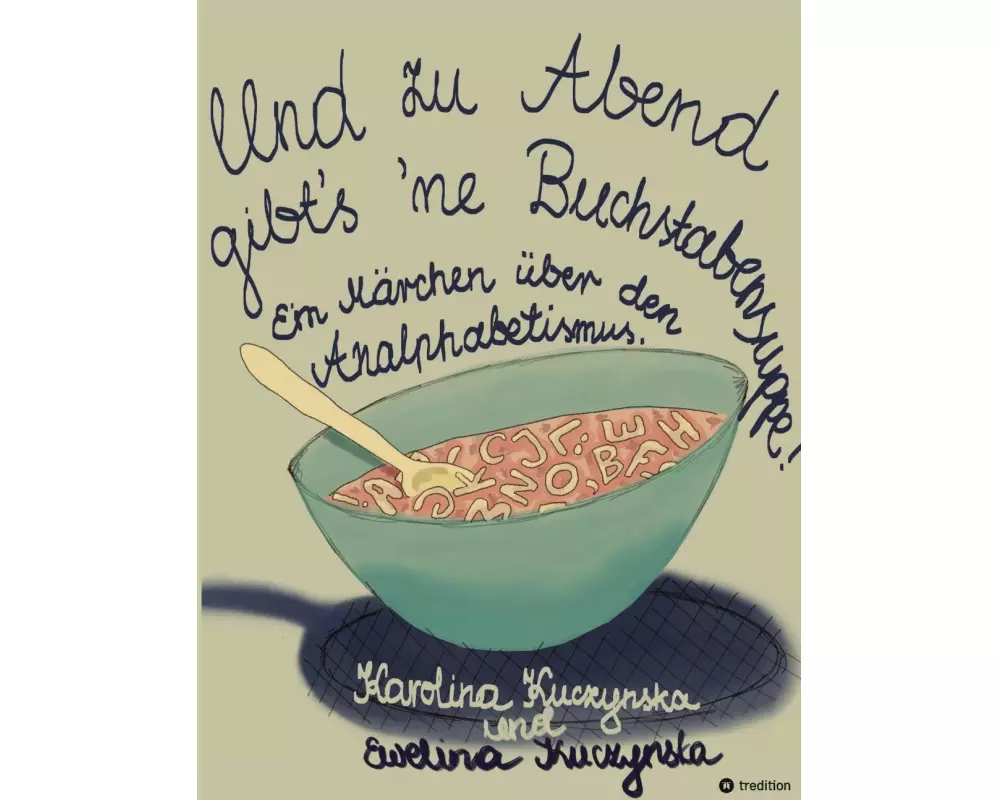 Und zu Abend
gibt's 'ne Buchstabensuppe!
Ein Märchen über den
Analphabetismus.
A K C J L : E H
I . A C K N O , B F A
M
Karolina Kuczynska
und
Ewelina Kuczynska
tredition